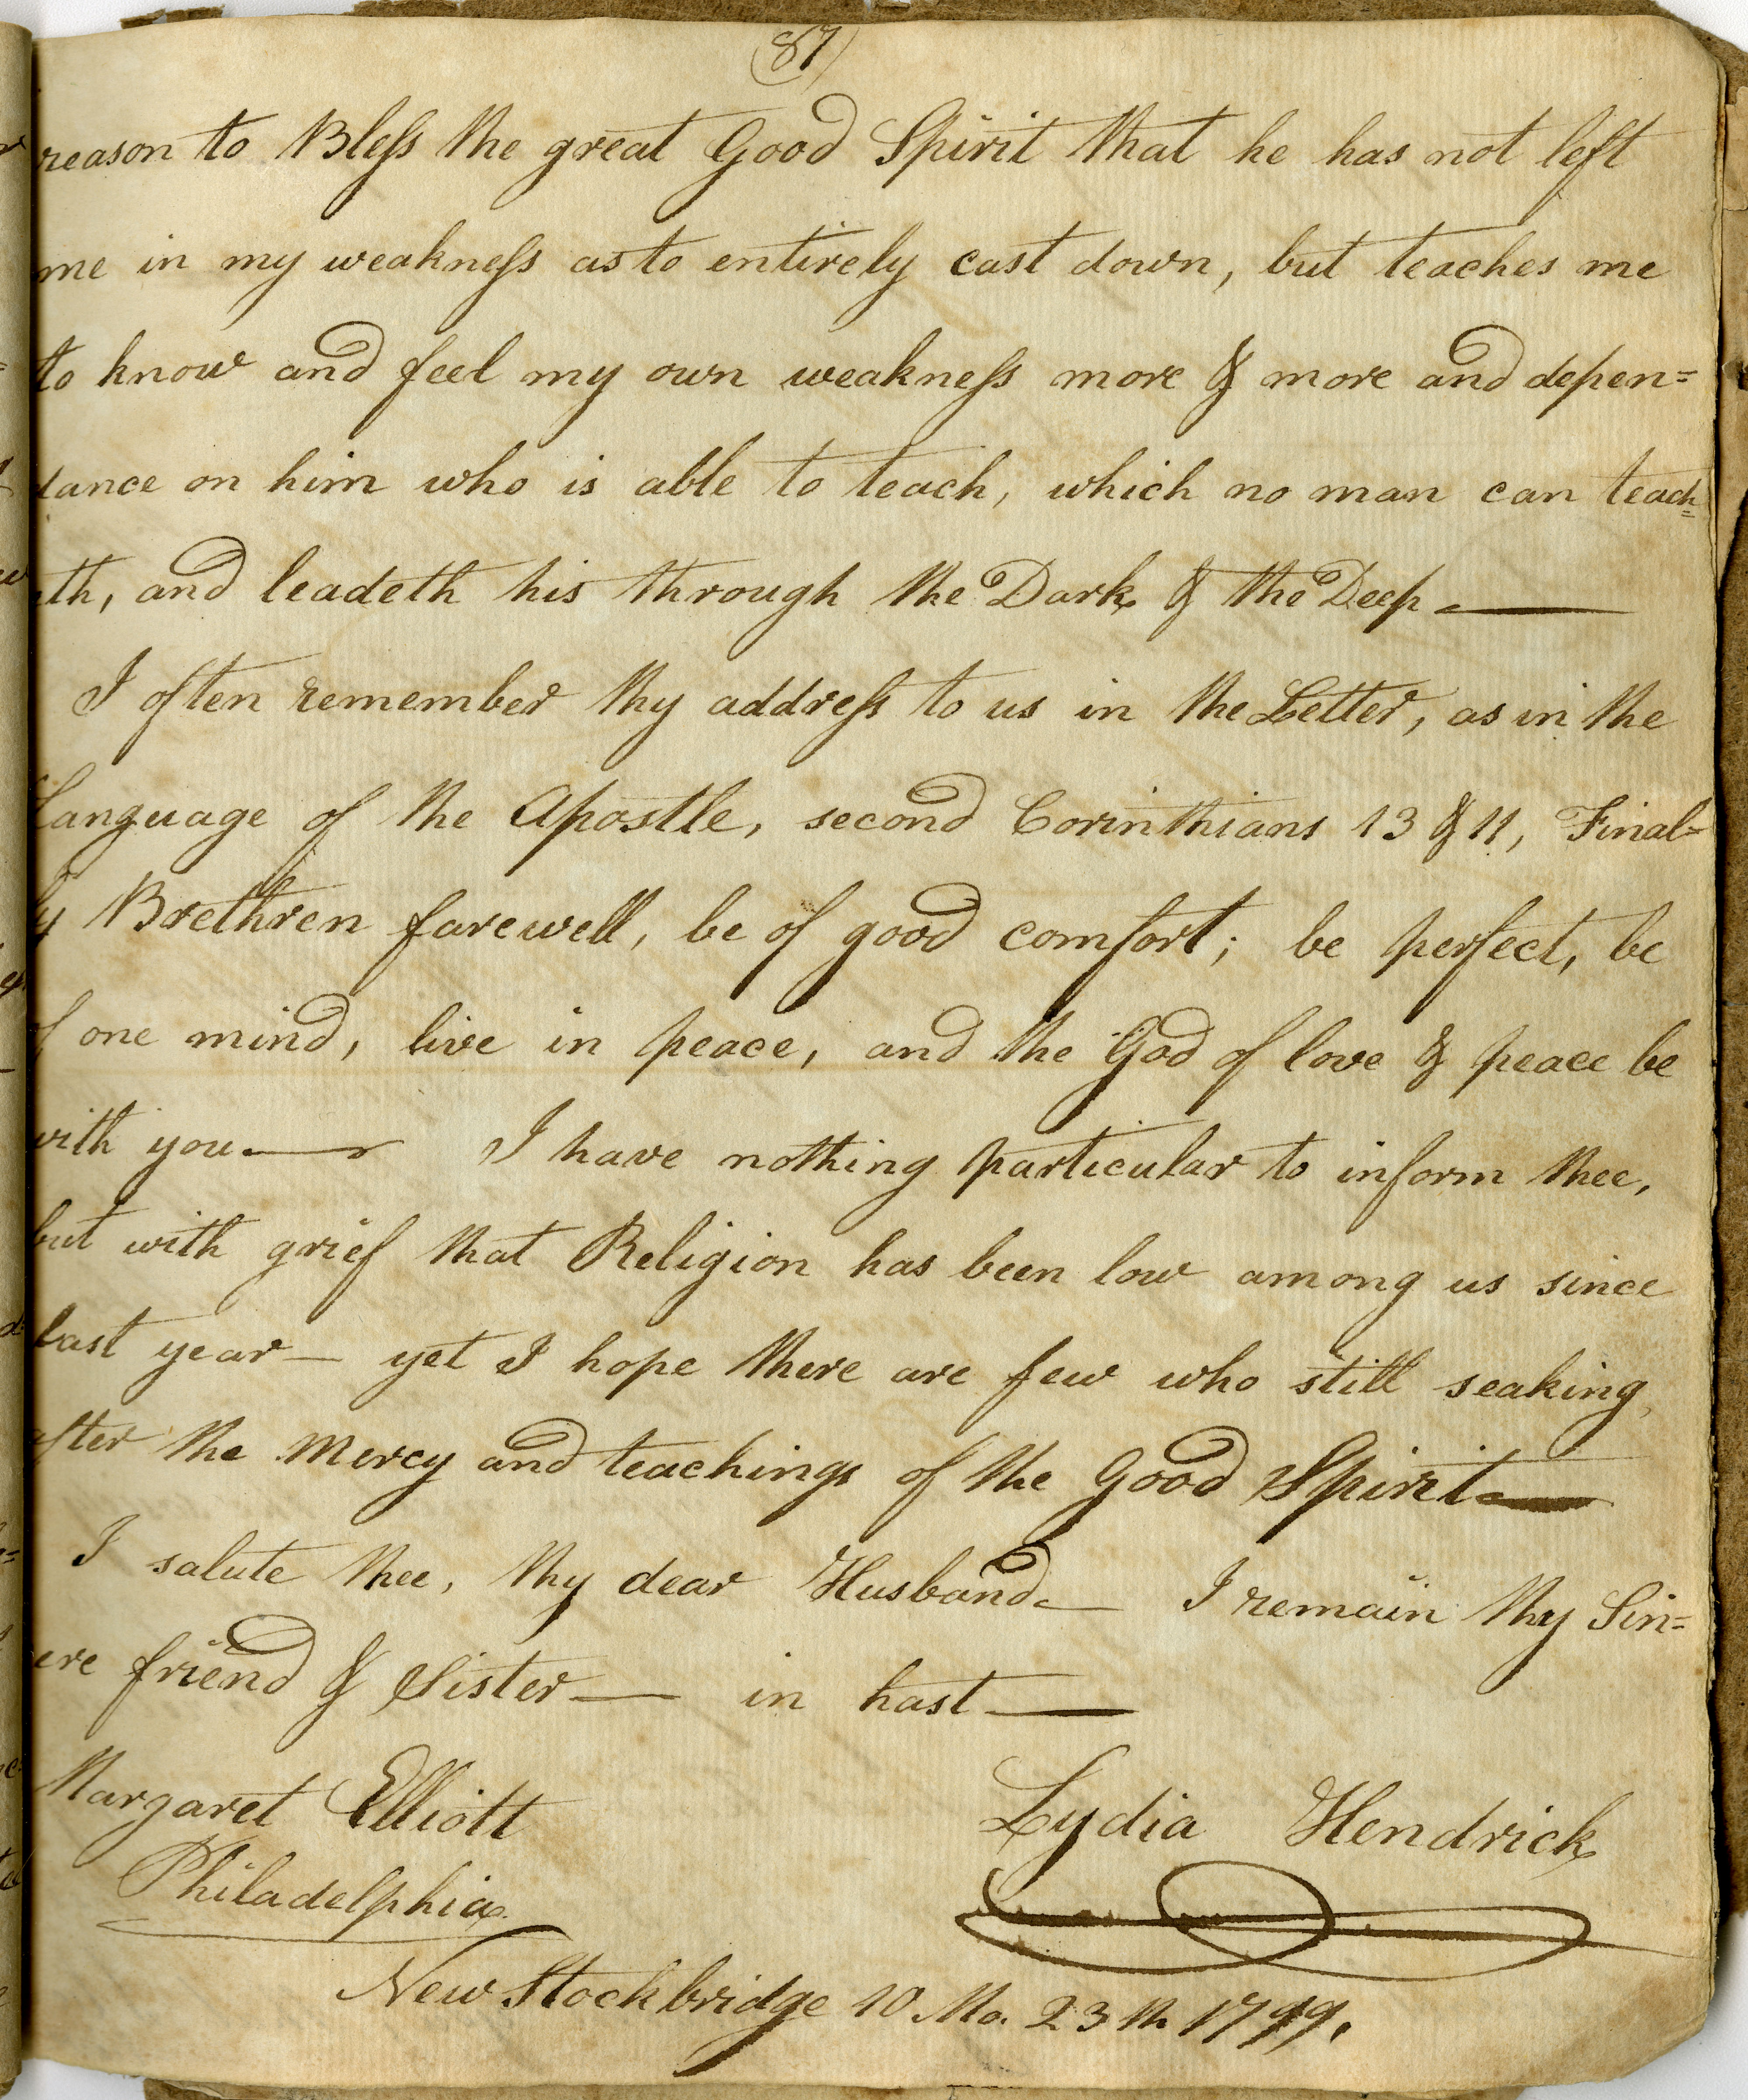 (87)
reason to Bless the great Good Spirit that he has not left
me in my weakness as to entirely cast down, but teaches me
to know and feel my own weakness more & more and depen=
dance on him who is able to teach, which no man can teach=
eth, and leadeth his through the Dark & the Deep —
I often remember thy address to us in the Letter, as in the
Language of the Apostle, second Corinthians 13 & 11, Final=
ly Brethren farewell, be of good comfort; be perfect, be
of one mind, live in peace, and the God of love & peace be
with you — I have nothing particular to inform thee,
but with grief that Religion has been low among us since
last year — yet I hope there are few who still seaking
after the Mercy and teachings of the Good Spirit —
I salute thee, thy dear Husband — I remain thy Sin=
cere friend & Sister — in hast —
Margaret Elliott
Philadelphia
Lydia Hendrick
New Stockbridge 10 Mo. 23th 1799.